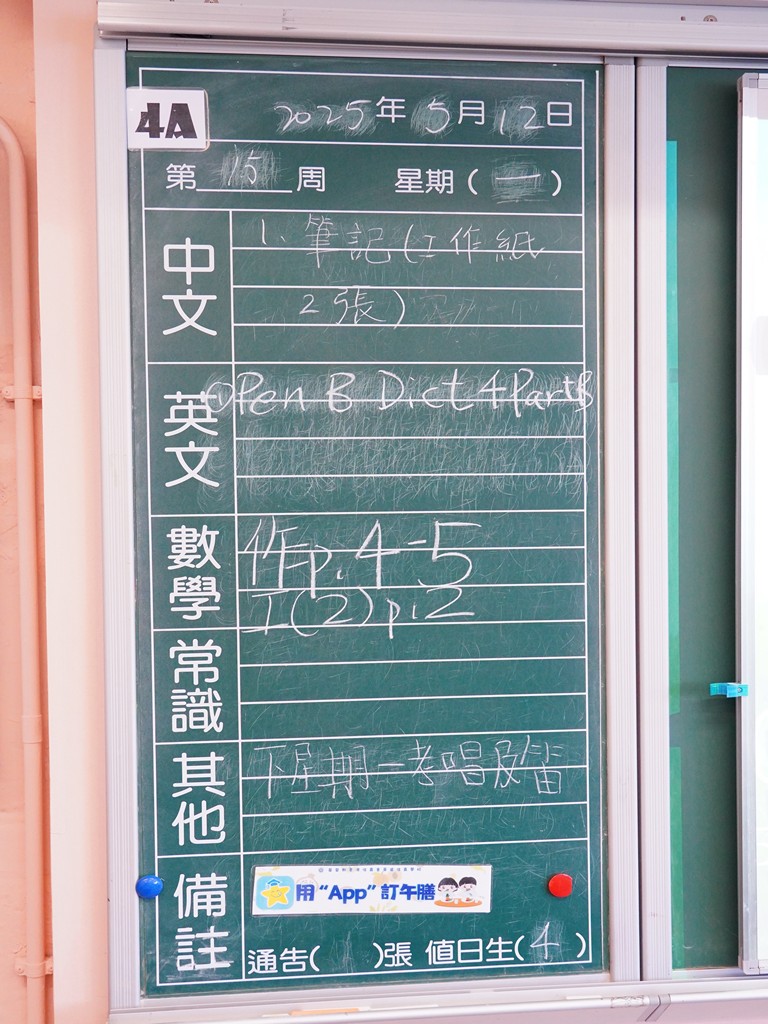 4A
2025年5月12日
第15周 星期(一)
中文
1. 筆記(工作紙
2張)
英文
Open B Dict 4 Part B
數學
作p.4-5
工(2)p.2
常識
其他
下星期一考唱及笛
備註
用“App”訂午膳
通告( )張 值日生(4)